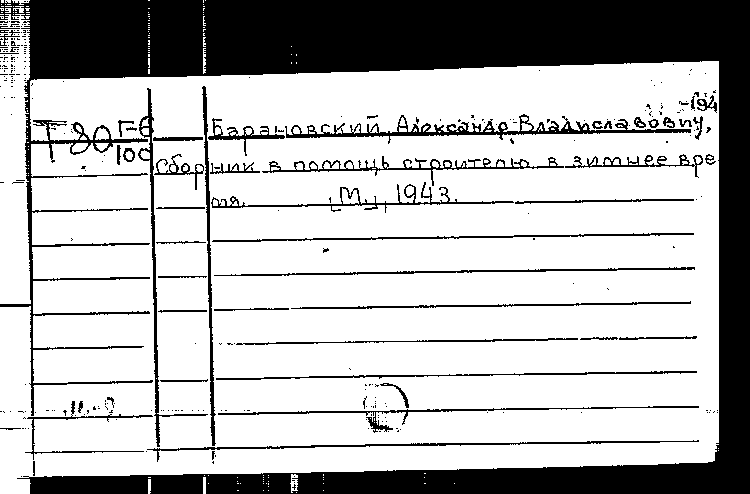 -194
Т 80 Г-6
100
Барановский, Александр Владиславович,
Сборник в помощь строителю в зимнее вре
мя. [М.], 1943.